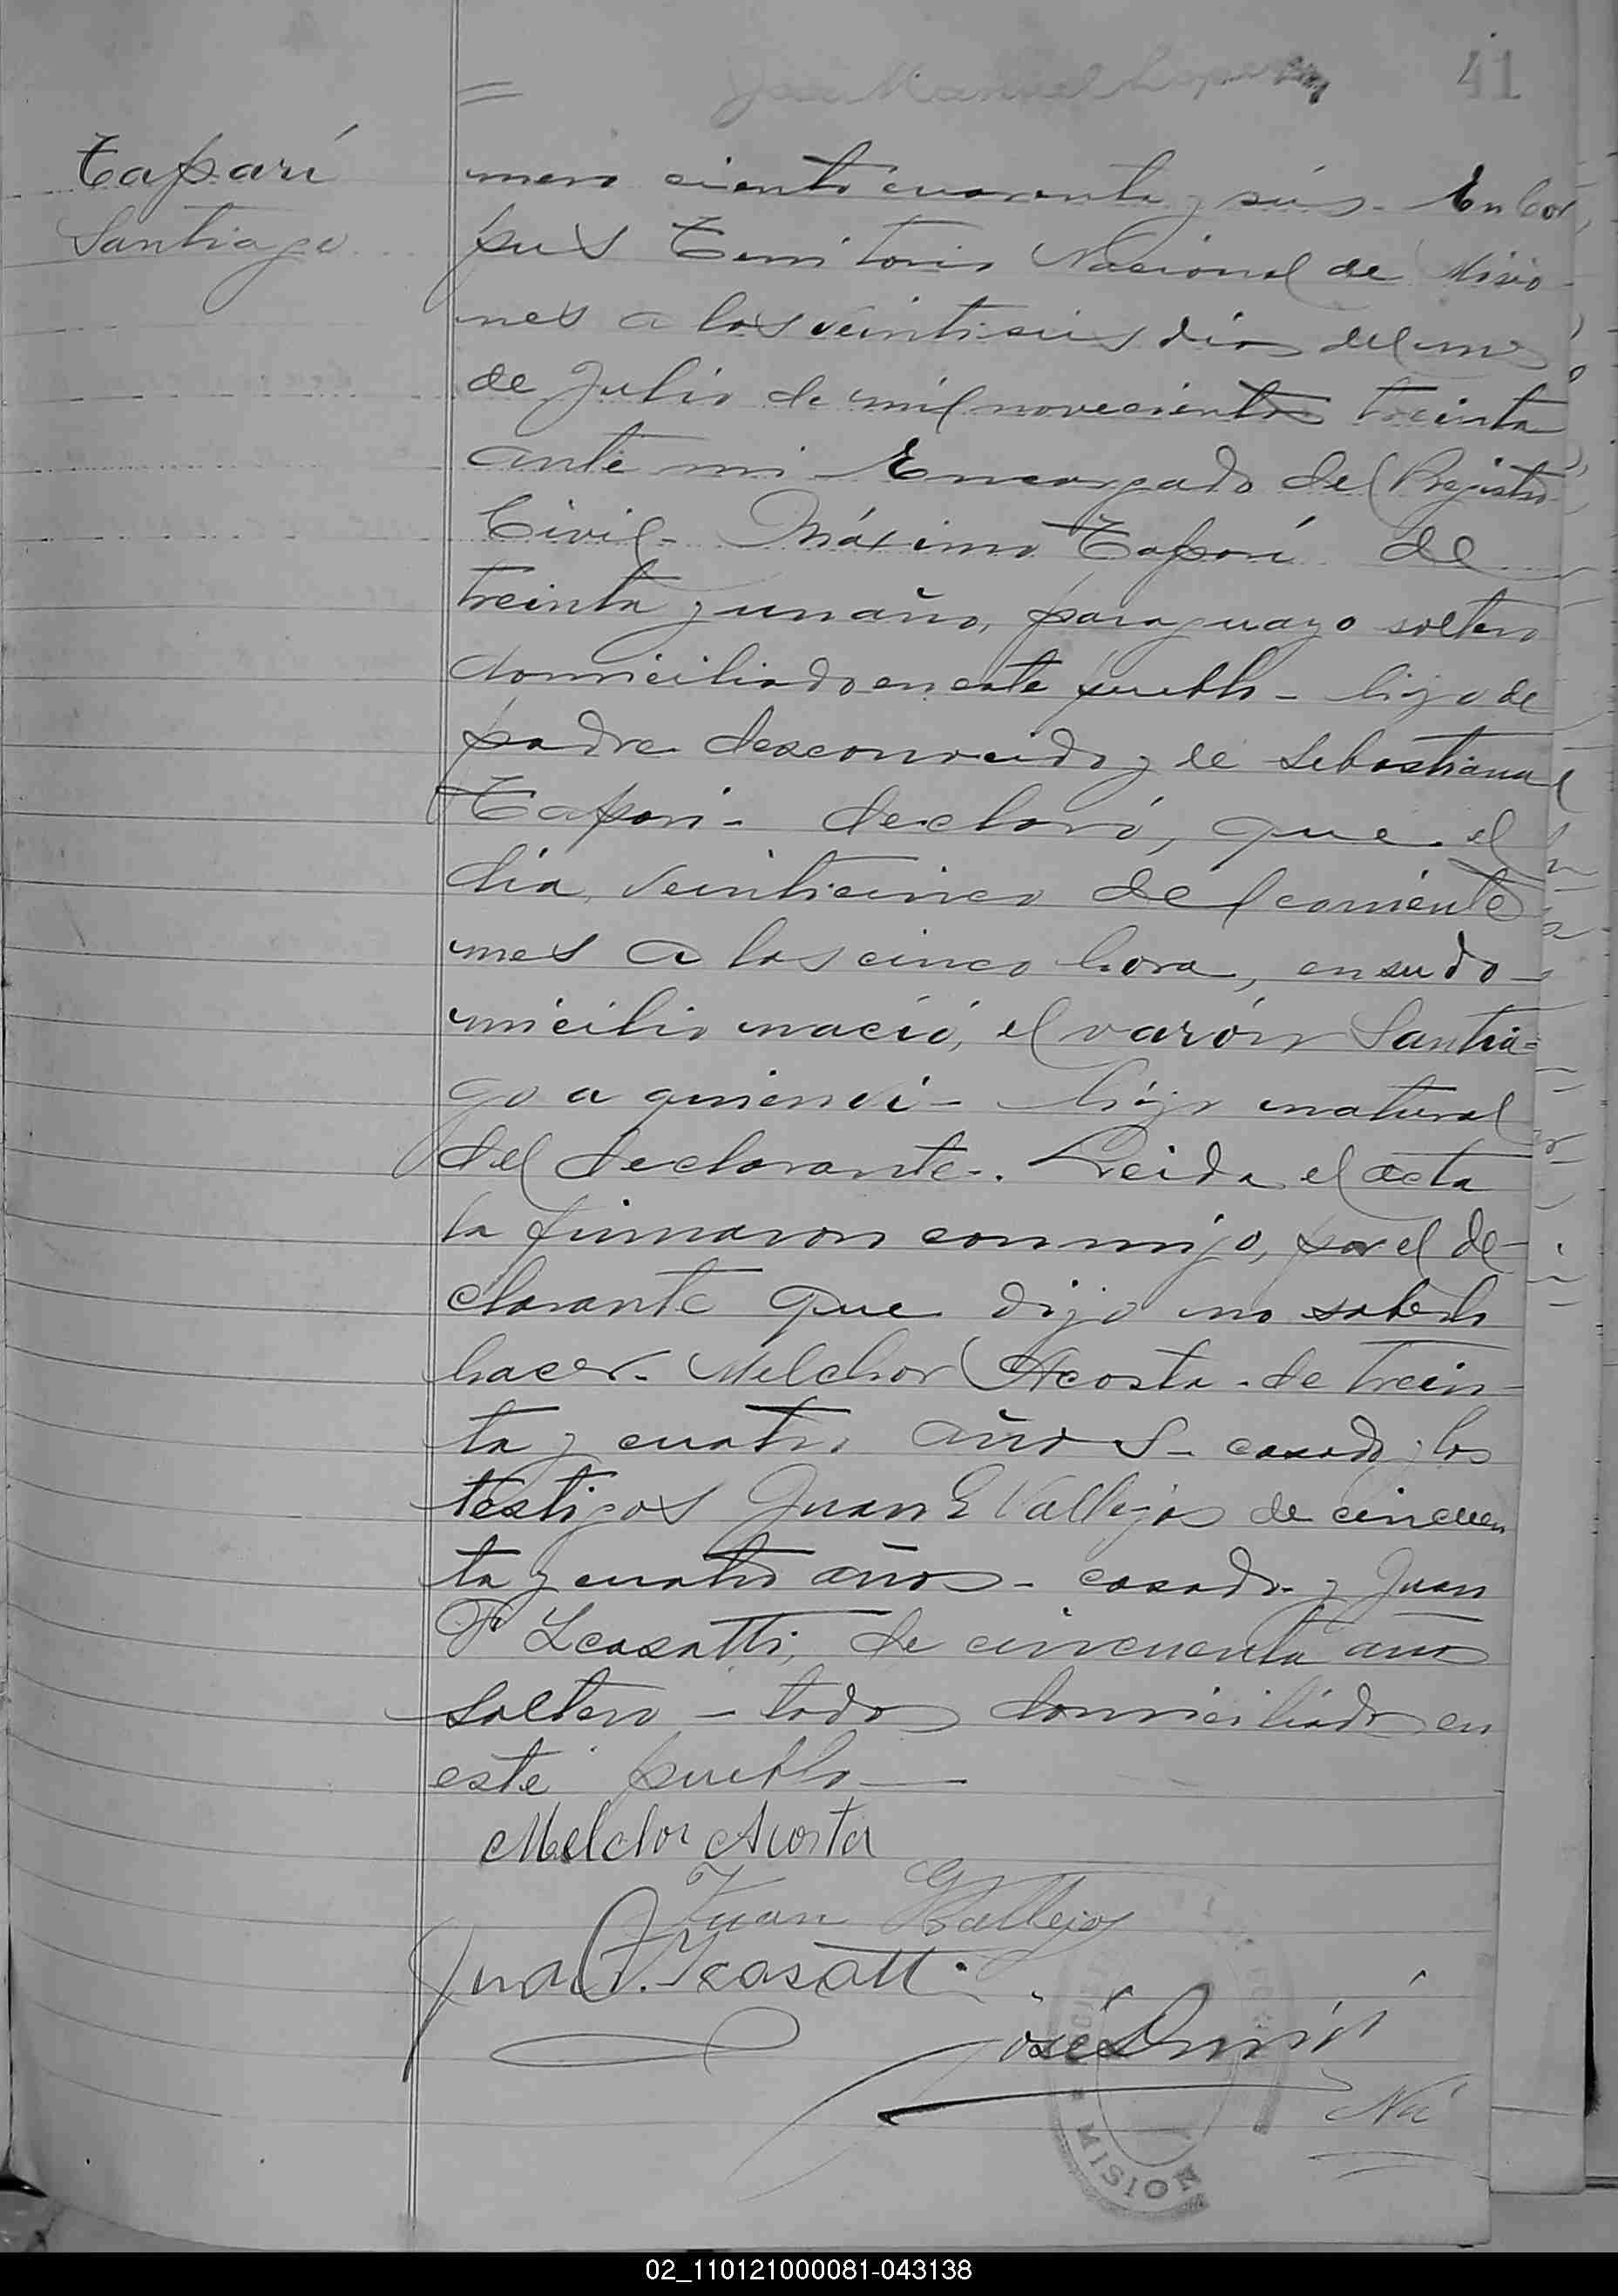 41
Taparí
Santiago
mero ciento cuarenta y seis - En Cor
pus Territorio Nacional de Misio
nes a los veintiseis dias del mes
de Julio de mil novecientos treinta
ante mi Encargado del Registro
Civil - Máximo Taparí de
treinta y un año, paraguayo soltero
domiciliado en este pueblo - hijo de
padre desconocido y de Sebastiana
Tapari - declaró, que el
dia veinticinco del corriente
mes a las cinco hora, en su do-
micilio nació, el varón Santia=
go a quien vi - hijo natural
del declarante -. Leida el acta
la firmaron conmigo, por el de-
clarante que dijo no saberlo
hacer - Melchor Acosta - de trein-
ta y cuatro años - casado y los
testigos Juan E Vallejos de cincuen
ta y cuatro años - casado - y Juan
F Icasatti, de cincuenta años
soltero - todos domiciliados en
este pueblo —
Melchor Acosta
Juan E Vallejos
Juan F. Icasatti
José
Nú
MISION
02_110121000081-043138